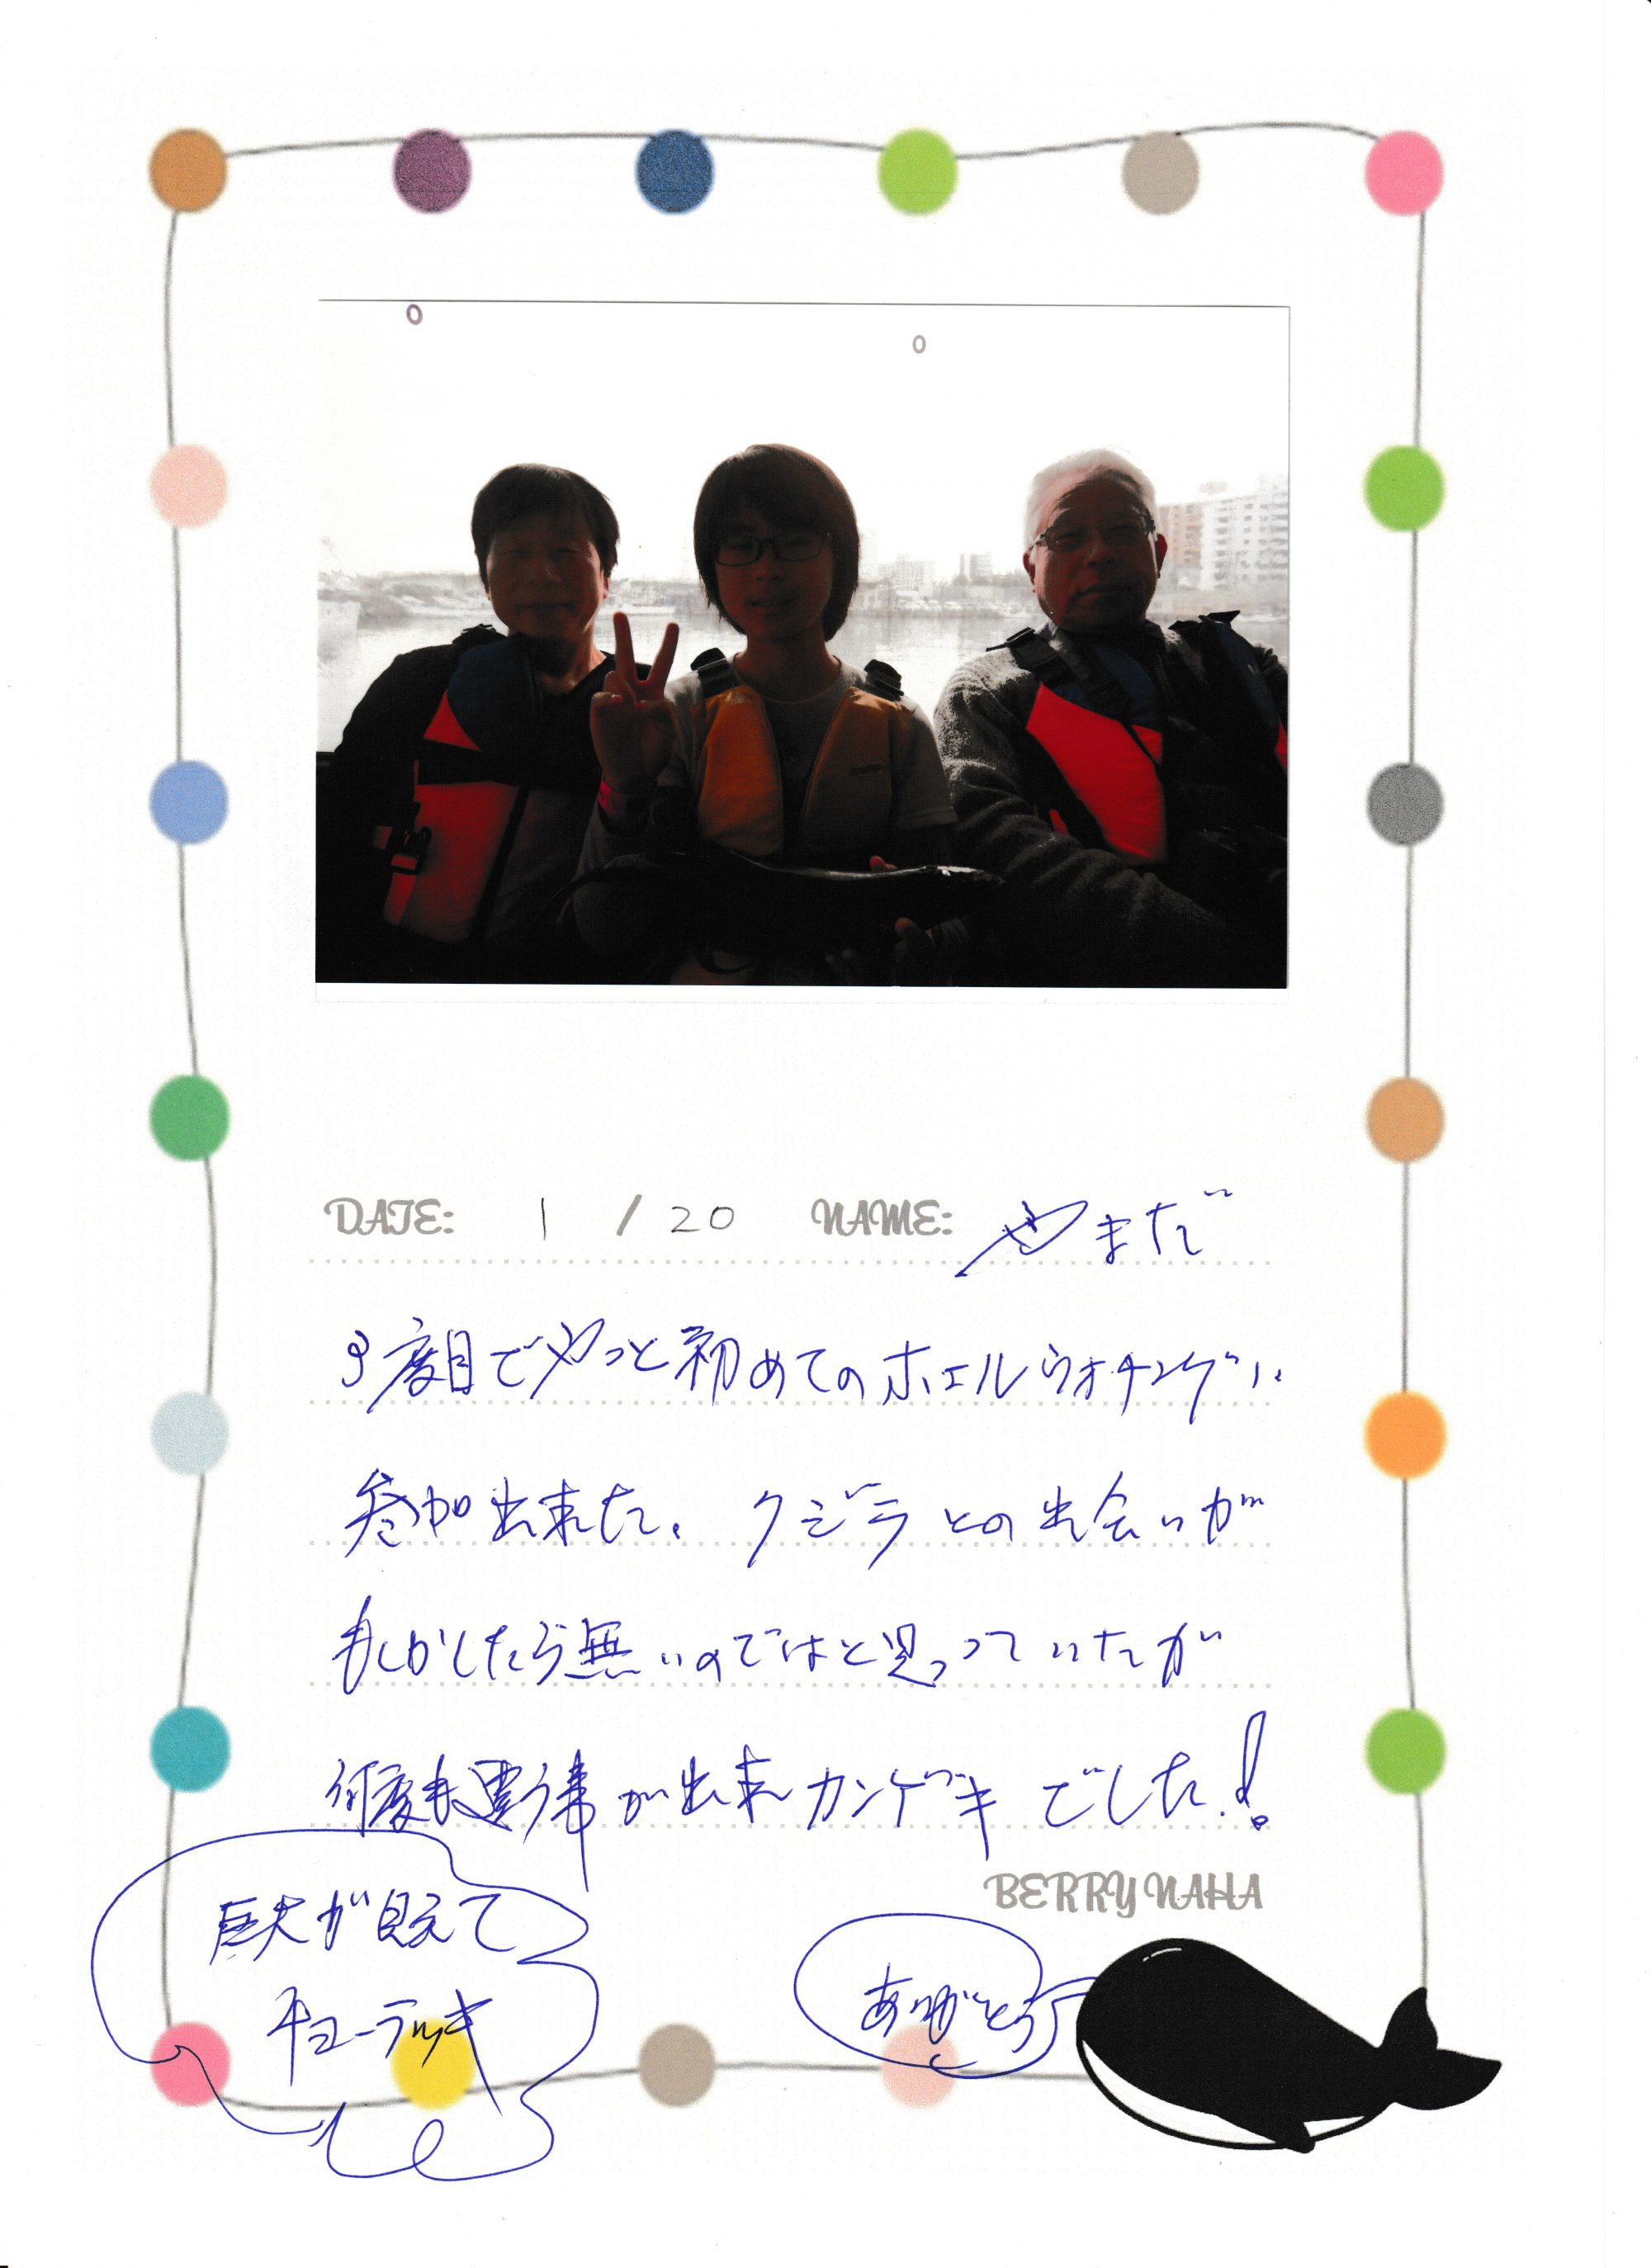 DATE: 1 / 20 NAME: やまだ
3度目でやっと初めてのホエルウォチングに
参加出来た。クジラとの出会いが
もしかしたら無いのではと思っていたが
何度も遭う事が出来カンゲキでした!
BERRY NAHA
巨大が見えて
チョーラッキ
ありがとう